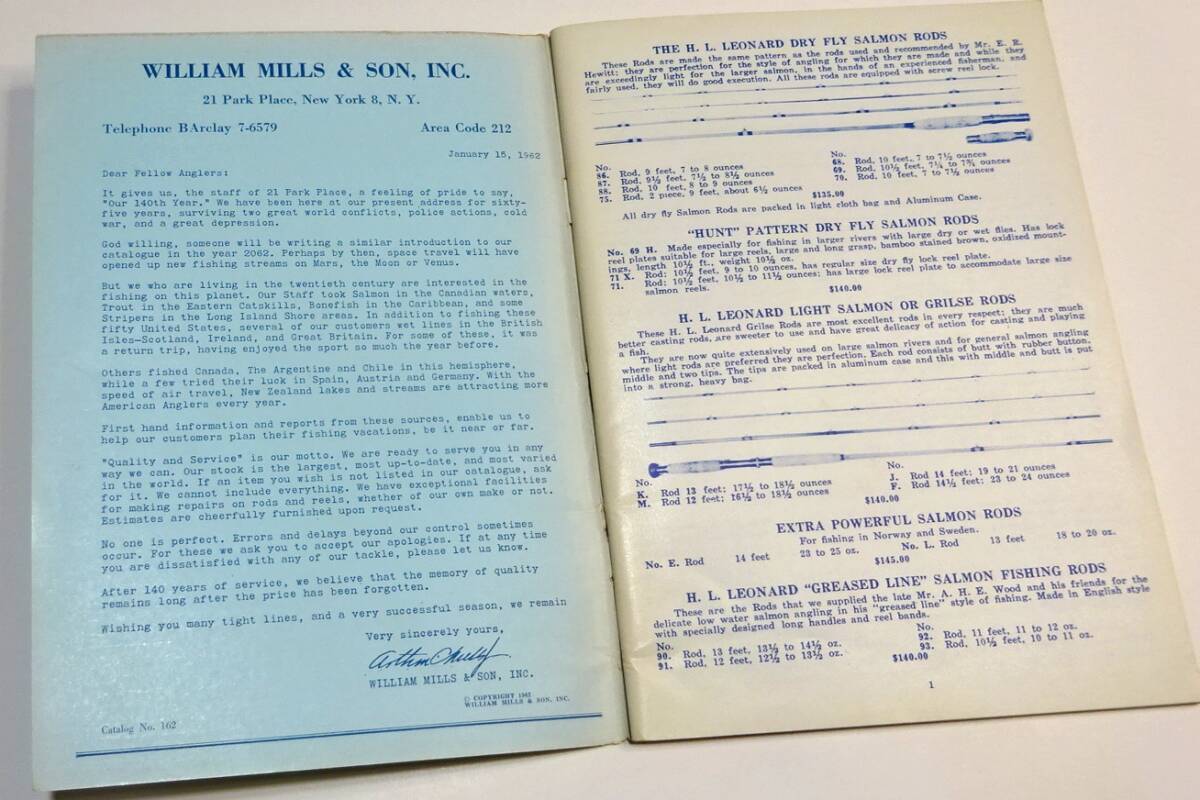 WILLIAM MILLS & SON, INC.
21 Park Place, New York 8, N. Y.
Telephone BArclay 7-6579 Area Code 212
January 15, 1962
Dear Fellow Anglers:
It gives us, the staff of 21 Park Place, a feeling of pride to say,
"Our 140th Year." We have been here at our present address for sixty-
five years, surviving two great world conflicts, police actions, cold
war, and a great depression.
God willing, someone will be writing a similar introduction to our
catalogue in the year 2062. Perhaps by then, space travel will have
opened up new fishing streams on Mars, the Moon or Venus.
But we who are living in the twentieth century are interested in the
fishing on this planet. Our Staff took Salmon in the Canadian waters,
Trout in the Eastern Catskills, Bonefish in the Caribbean, and some
Stripers in the Long Island Shore areas. In addition to fishing these
fifty United States, several of our customers wet lines in the British
Isles—Scotland, Ireland, and Great Britain. For some of these, it was
a return trip, having enjoyed the sport so much the year before.
Others fished Canada, The Argentine and Chile in this hemisphere,
while a few tried their luck in Spain, Austria and Germany. With the
speed of air travel, New Zealand lakes and streams are attracting more
American Anglers every year.
First hand information and reports from these sources, enable us to
help our customers plan their fishing vacations, be it near or far.
"Quality and Service" is our motto. We are ready to serve you in any
way we can. Our stock is the largest, most up-to-date, and most varied
in the world. If an item you wish is not listed in our catalogue, ask
for it. We cannot include everything. We have exceptional facilities
for making repairs on rods and reels, whether of our own make or not.
Estimates are cheerfully furnished upon request.
No one is perfect. Errors and delays beyond our control sometimes
occur. For these we ask you to accept our apologies. If at any time
you are dissatisfied with any of our tackle, please let us know.
After 140 years of service, we believe that the memory of quality
remains long after the price has been forgotten.
Wishing you many tight lines, and a very successful season, we remain
Very sincerely yours,
WILLIAM MILLS & SON, INC.
© COPYRIGHT 1962
WILLIAM MILLS & SON, INC.
Catalog No. 162
THE H. L. LEONARD DRY FLY SALMON RODS
These Rods are made the same pattern as the rods used and recommended by Mr. E. R.
Hewitt; they are perfection for the style of angling for which they are made and while they
are exceedingly light for the larger salmon, in the hands of an experienced fisherman, and
fairly used, they will do good execution. All these rods are equipped with screw reel lock.
No. No.
86. Rod, 9 feet, 7 to 8 ounces 68. Rod, 10 feet, 7 to 7½ ounces
87. Rod, 9½ feet, 7½ to 8½ ounces 69. Rod, 10½ feet, 7¼ to 7¾ ounces
88. Rod, 10 feet, 8 to 9 ounces 70. Rod, 10 feet, 7 to 7½ ounces
75. Rod, 2 piece, 9 feet, about 6½ ounces
$135.00
All dry fly Salmon Rods are packed in light cloth bag and Aluminum Case.
"HUNT" PATTERN DRY FLY SALMON RODS
No. 69 H. Made especially for fishing in larger rivers with large dry or wet flies. Has lock
reel plates suitable for large reels, large and long grasp, bamboo stained brown, oxidized mount-
ings, length 10½ ft., weight 10½ oz.
71 X. Rod: 10½ feet, 9 to 10 ounces, has regular size dry fly lock reel plate.
71. Rod: 10½ feet, 10½ to 11½ ounces; has large lock reel plate to accommodate large size
salmon reels. $140.00
H. L. LEONARD LIGHT SALMON OR GRILSE RODS
These H. L. Leonard Grilse Rods are most excellent rods in every respect; they are much
better casting rods, are sweeter to use and have great delicacy of action for casting and playing
a fish.
They are now quite extensively used on large salmon rivers and for general salmon angling
where light rods are preferred they are perfection. Each rod consists of butt with rubber button,
middle and two tips. The tips are packed in aluminum case and this with middle and butt is put
into a strong, heavy bag.
No. No.
K. Rod 13 feet; 17½ to 18½ ounces J. Rod 14 feet; 19 to 21 ounces
M. Rod 12 feet; 16½ to 18½ ounces F. Rod 14½ feet; 23 to 24 ounces
$140.00
EXTRA POWERFUL SALMON RODS
For fishing in Norway and Sweden.
No. E. Rod 14 feet 23 to 25 oz. No. L. Rod 13 feet 18 to 20 oz.
$145.00
H. L. LEONARD "GREASED LINE" SALMON FISHING RODS
These are the Rods that we supplied the late Mr. A. H. E. Wood and his friends for the
delicate low water salmon angling in his "greased line" style of fishing. Made in English style
with specially designed long handles and reel bands.
No. No.
90. Rod, 13 feet, 13½ to 14½ oz. 92. Rod, 11 feet, 11 to 12 oz.
91. Rod, 12 feet, 12½ to 13½ oz. 93. Rod, 10½ feet, 10 to 11 oz.
$140.00
1